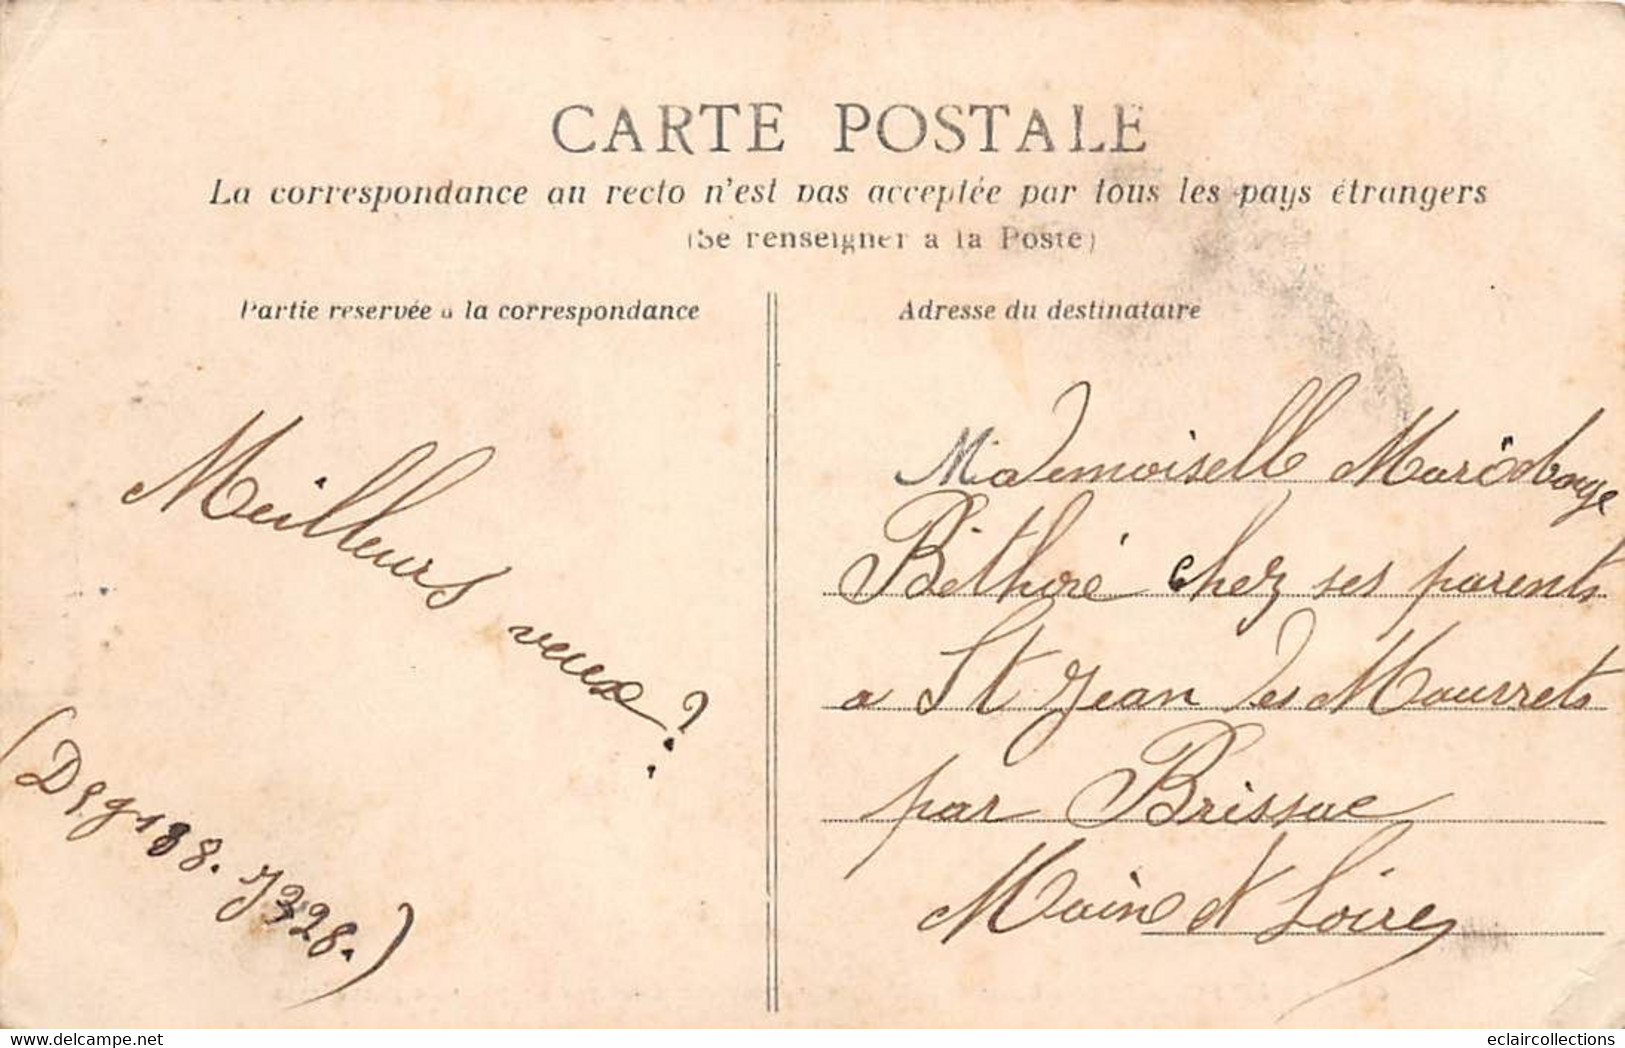 CARTE POSTALE
La correspondance au recto n'est pas acceptée par tous les pays étrangers
(Se renseigner à la Poste)
Partie reservée à la correspondance
Adresse du destinataire
Meilleurs
veux?
Mademoiselle
Béthoré chez ses parents
a St Jean des Mauvrets
par Brissac
Maine et Loire
eclaircollections